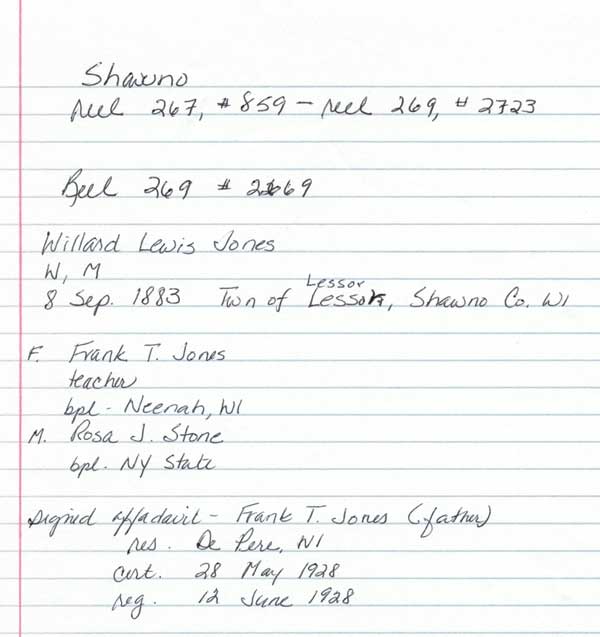 Shawno
reel 267, #859 - reel 269, #2723
Reel 269 #
Willard Lewis Jones
W, M
Lessor
8 Sep. 1883 Twn of Lessor, Shawno Co. WI
F. Frank T. Jones
teacher
bpl - Neenah, WI
M. Rosa J. Stone
bpl. NY State
signed affadavit - Frank T. Jones (father)
res. De Pere, WI
cert. 28 May 1928
reg. 12 June 1928